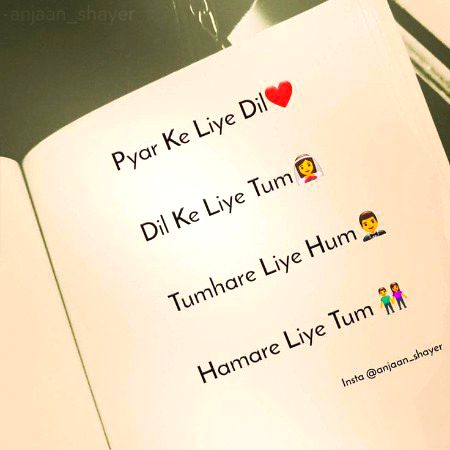 anjaan_shayer
Pyar Ke Liye Dil❤️
Dil Ke Liye Tum👰
Tumhare Liye Hum🤵
Hamare Liye Tum 👫
Insta @anjaan_shayer